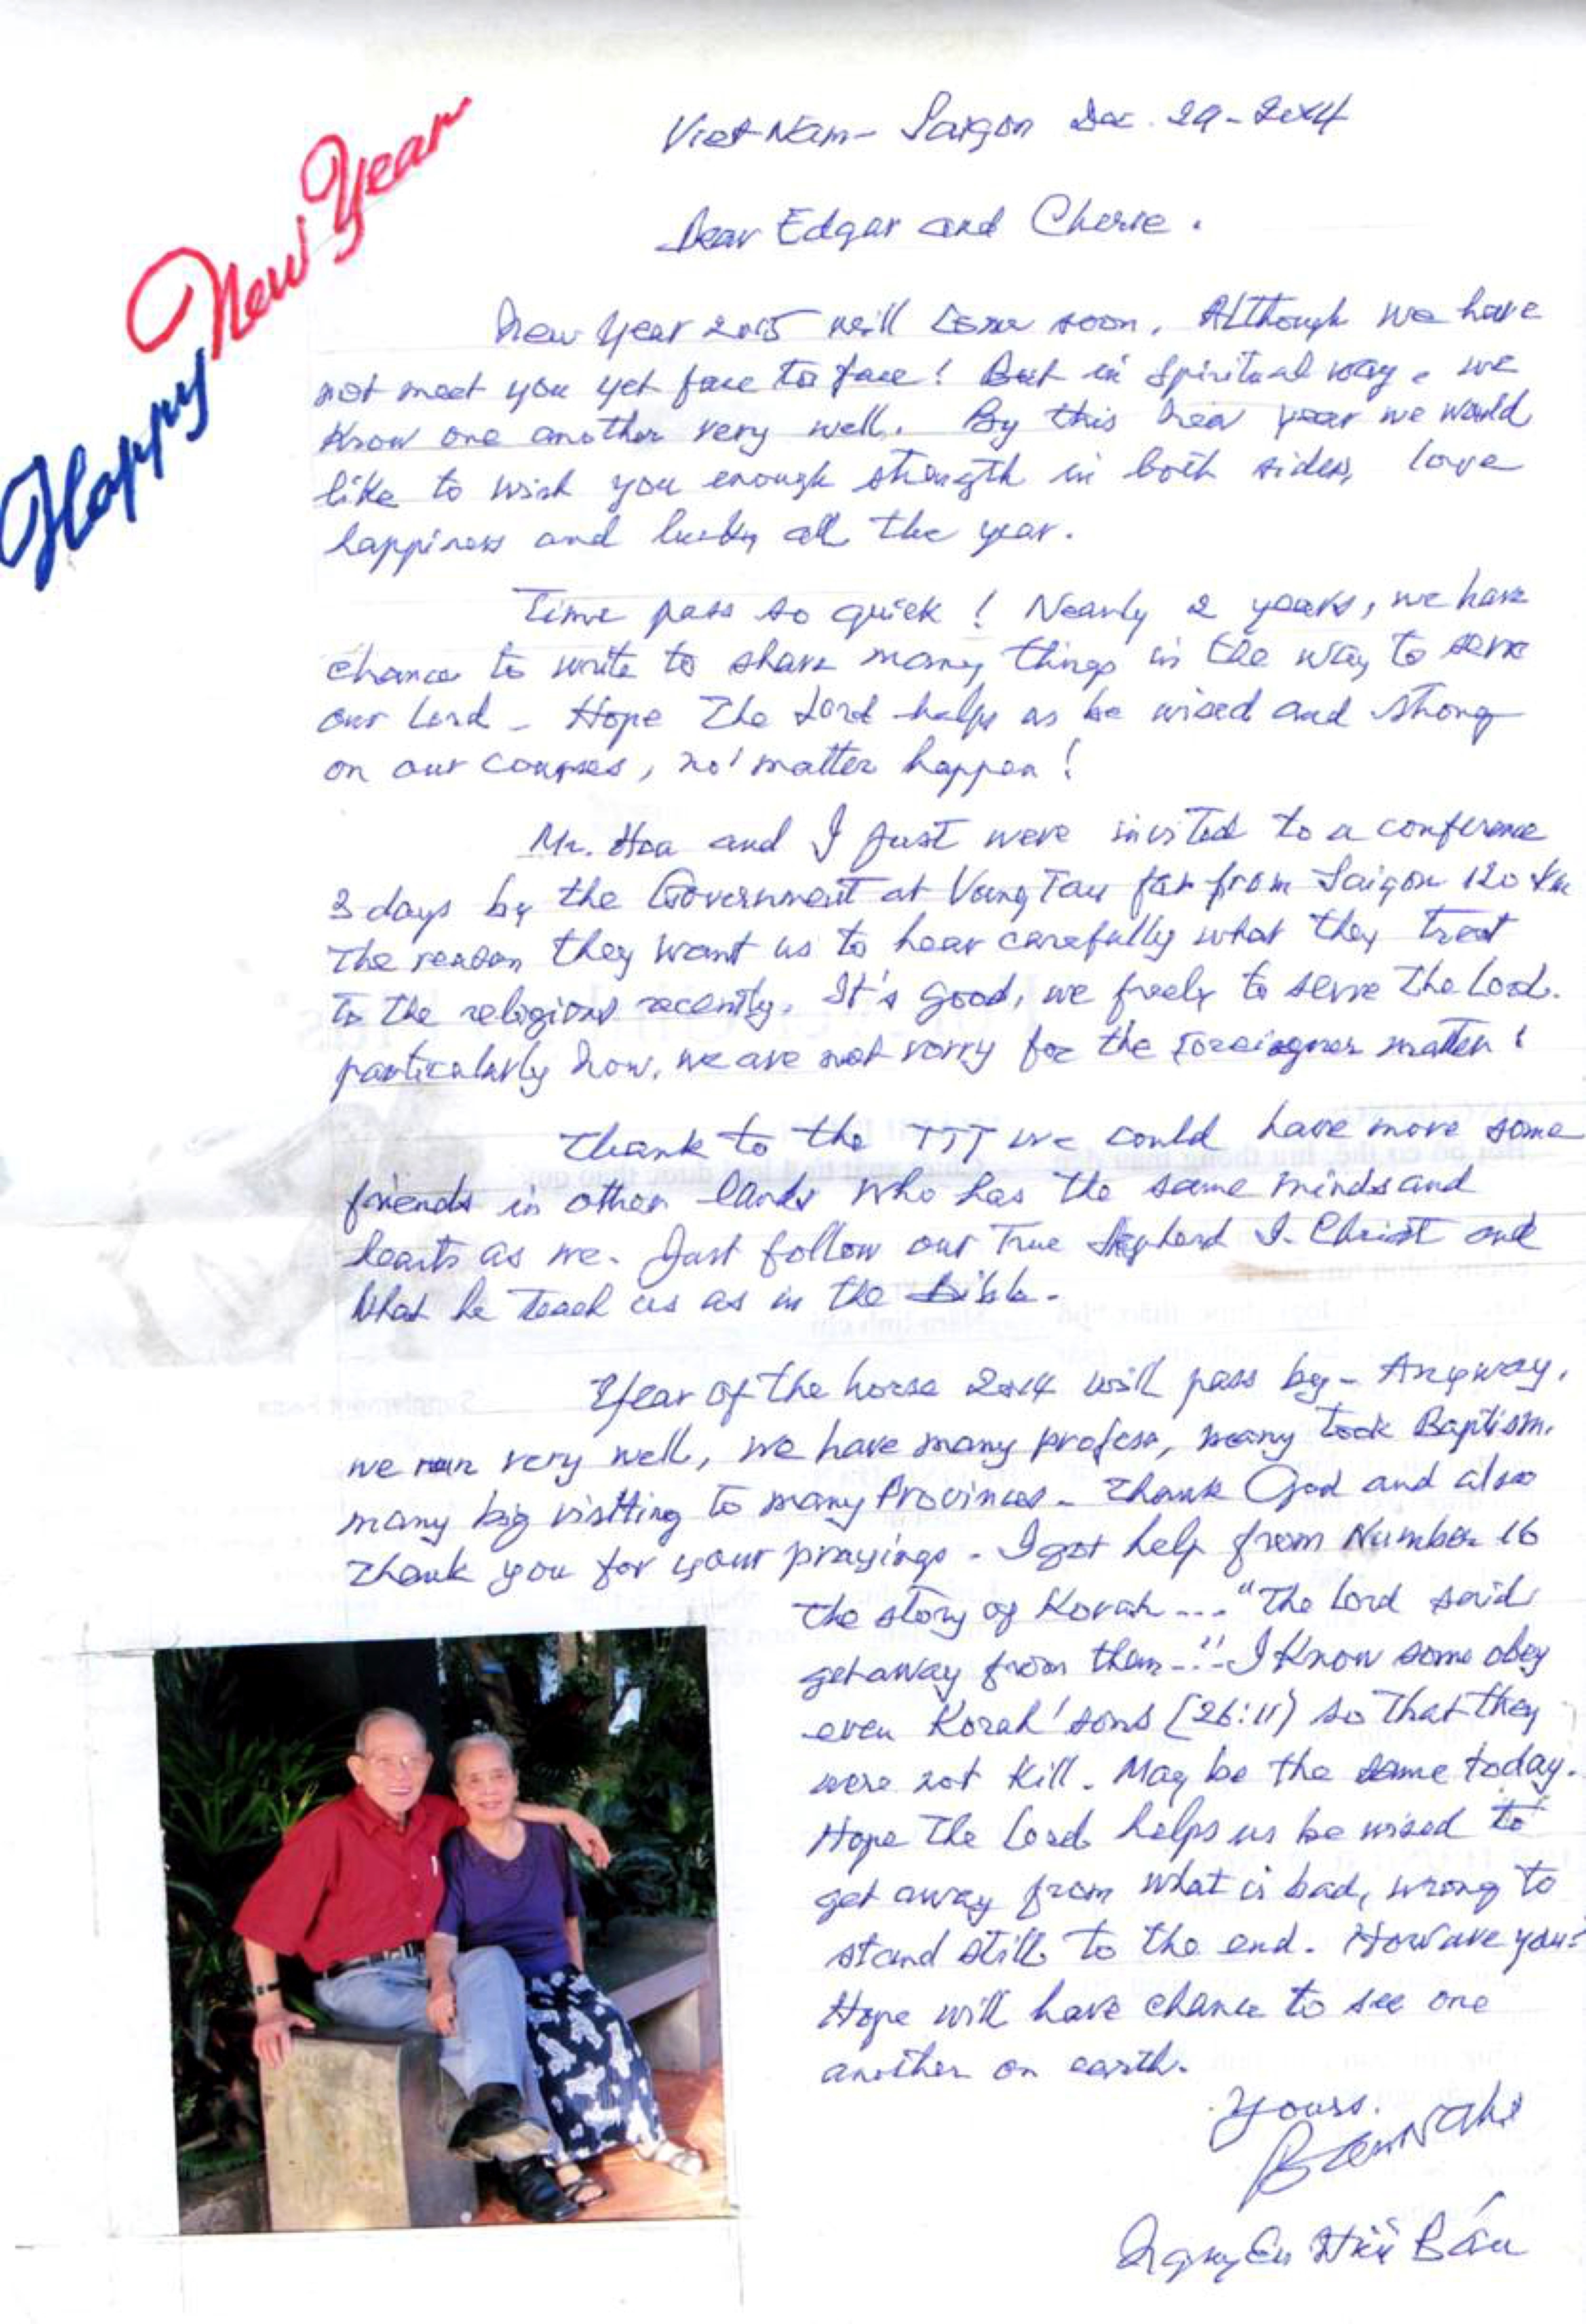 Happy New Year
Viet-Nam - Saigon Dec. 29 - 2014
Dear Edgar and Cherie.
New Year 2015 will come soon. Although we have
not meet you yet face to face! But in spiritual way, we
know one another very well. By this new year we would
like to wish you enough strength in both sides, love
happiness and lucky all the year.
Time pass so quick! Nearly 2 years, we have
chance to write to share many things in the way to serve
our Lord - Hope The Lord helps us be wised and strong
on our courses, no' matter happen!
Mr. Hoa and I just were invited to a conference
3 days by the Government at Vung Tau far from Saigon 120 km
The reason they want us to hear carefully what they treat
to the religions recently. It's good, we freely to serve The Lord.
particularly now, we are not vorry for the foreigner matter!
Thank to the TTT we could have more some
friends in other lands who has the same minds and
hearts as we. Just follow our True Shepherd J. Christ and
What he teach us as in the Bible.
Year of the horse 2014 will pass by - Anyway,
we run very well, we have many profess, many took Baptism.
many big visitting to many Provinces - Thank God and also
Thank you for your prayings - I got help from Number 16
the story of Korah ... "The Lord said
get away from them..." - I know some obey
even Korah' sons (26:11) so that they
were not kill. May be the same today.
Hope The Lord helps us be wised to
get away from what is bad, wrong to
stand still to the end. How are you?
Hope will have chance to see one
another on earth.
Yours.
Nguyễn Hữu Báu